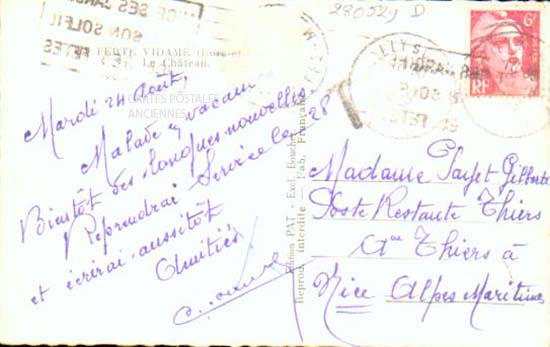 280529 D
6F
RF
SON SOLEIL
FERTÉ VIDAME
Le Château
CARTES POSTALES
ANCIENNES
Mardi 24 Août,
Malade en vacances
Bientôt des longues nouvelles
Reprendrai Service le 28
et écrirai aussitôt
Amitiés
Edition PAT - Excl. Fouché
Reprod. interdite - Fab. Française
Madame Payet Gilberte
Poste Restante Thiers
Ave Thiers à
Nice Alpes Maritimes